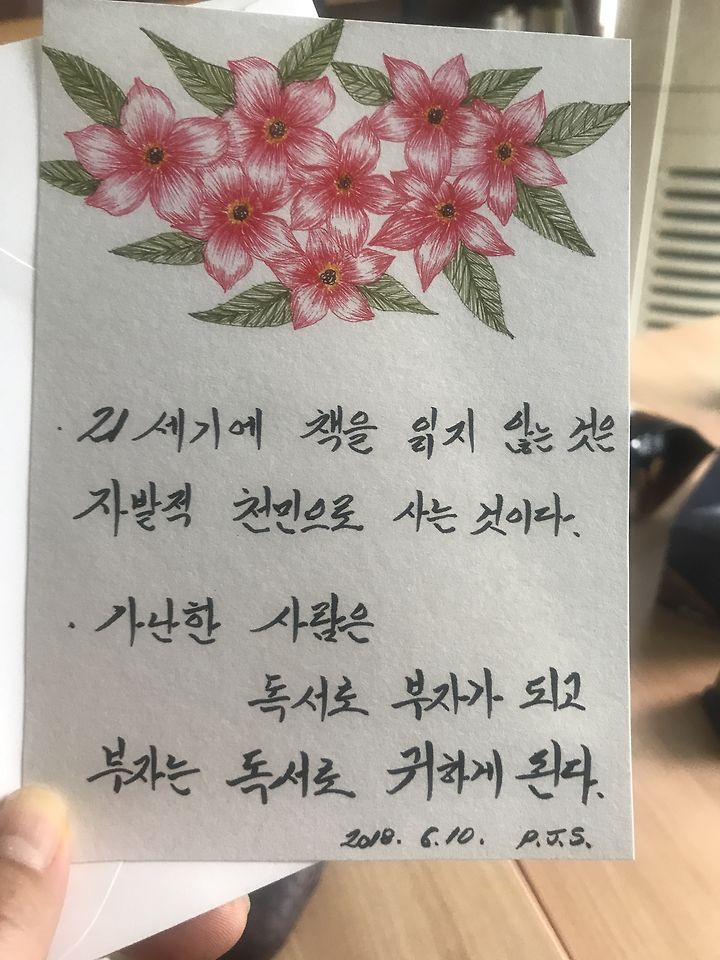 · 21세기에 책을 읽지 않는 것은
자발적 천민으로 사는 것이다.
· 가난한 사람은
독서로 부자가 되고
부자는 독서로 귀하게 된다.
2018. 6. 10. P.J.S.